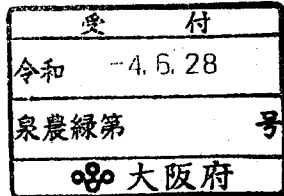 受付
令和 -4.6.28
泉農緑第 号
大阪府